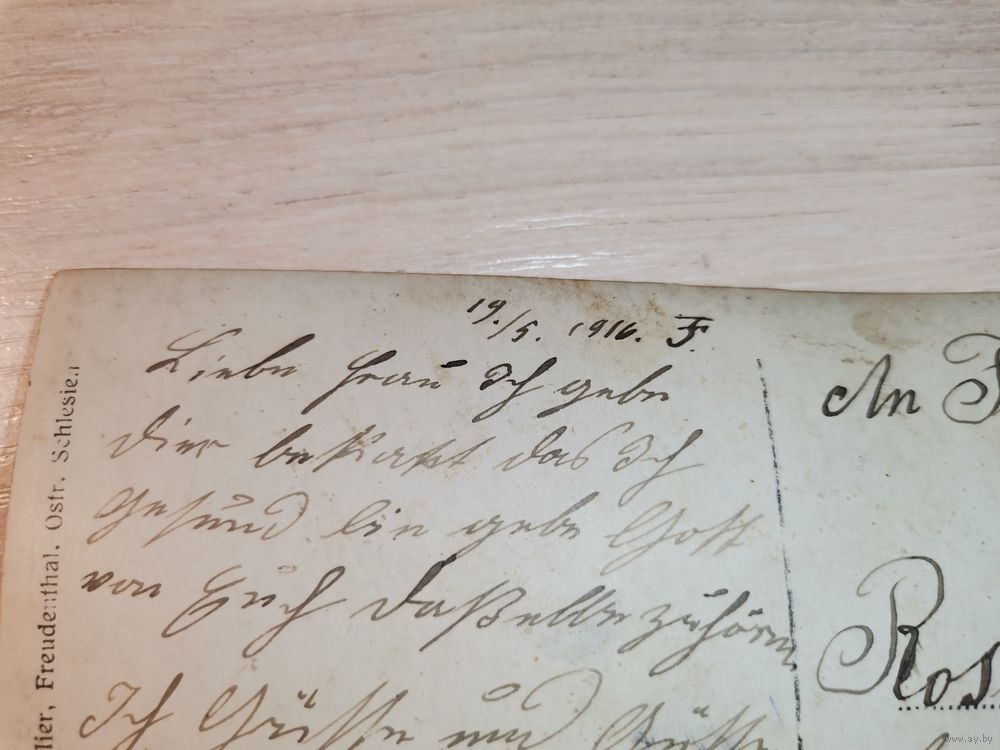 19./5. 1916. F.
Liebe Frau Ich gebe
Dier bekant das Ich
Gesund bin gebe Gott
von Euch daßelbe zuhören
Ich Grüsse und Küsse
An F
Ros
lier, Freudenthal. Ostr. Schlesien
www.ay.by